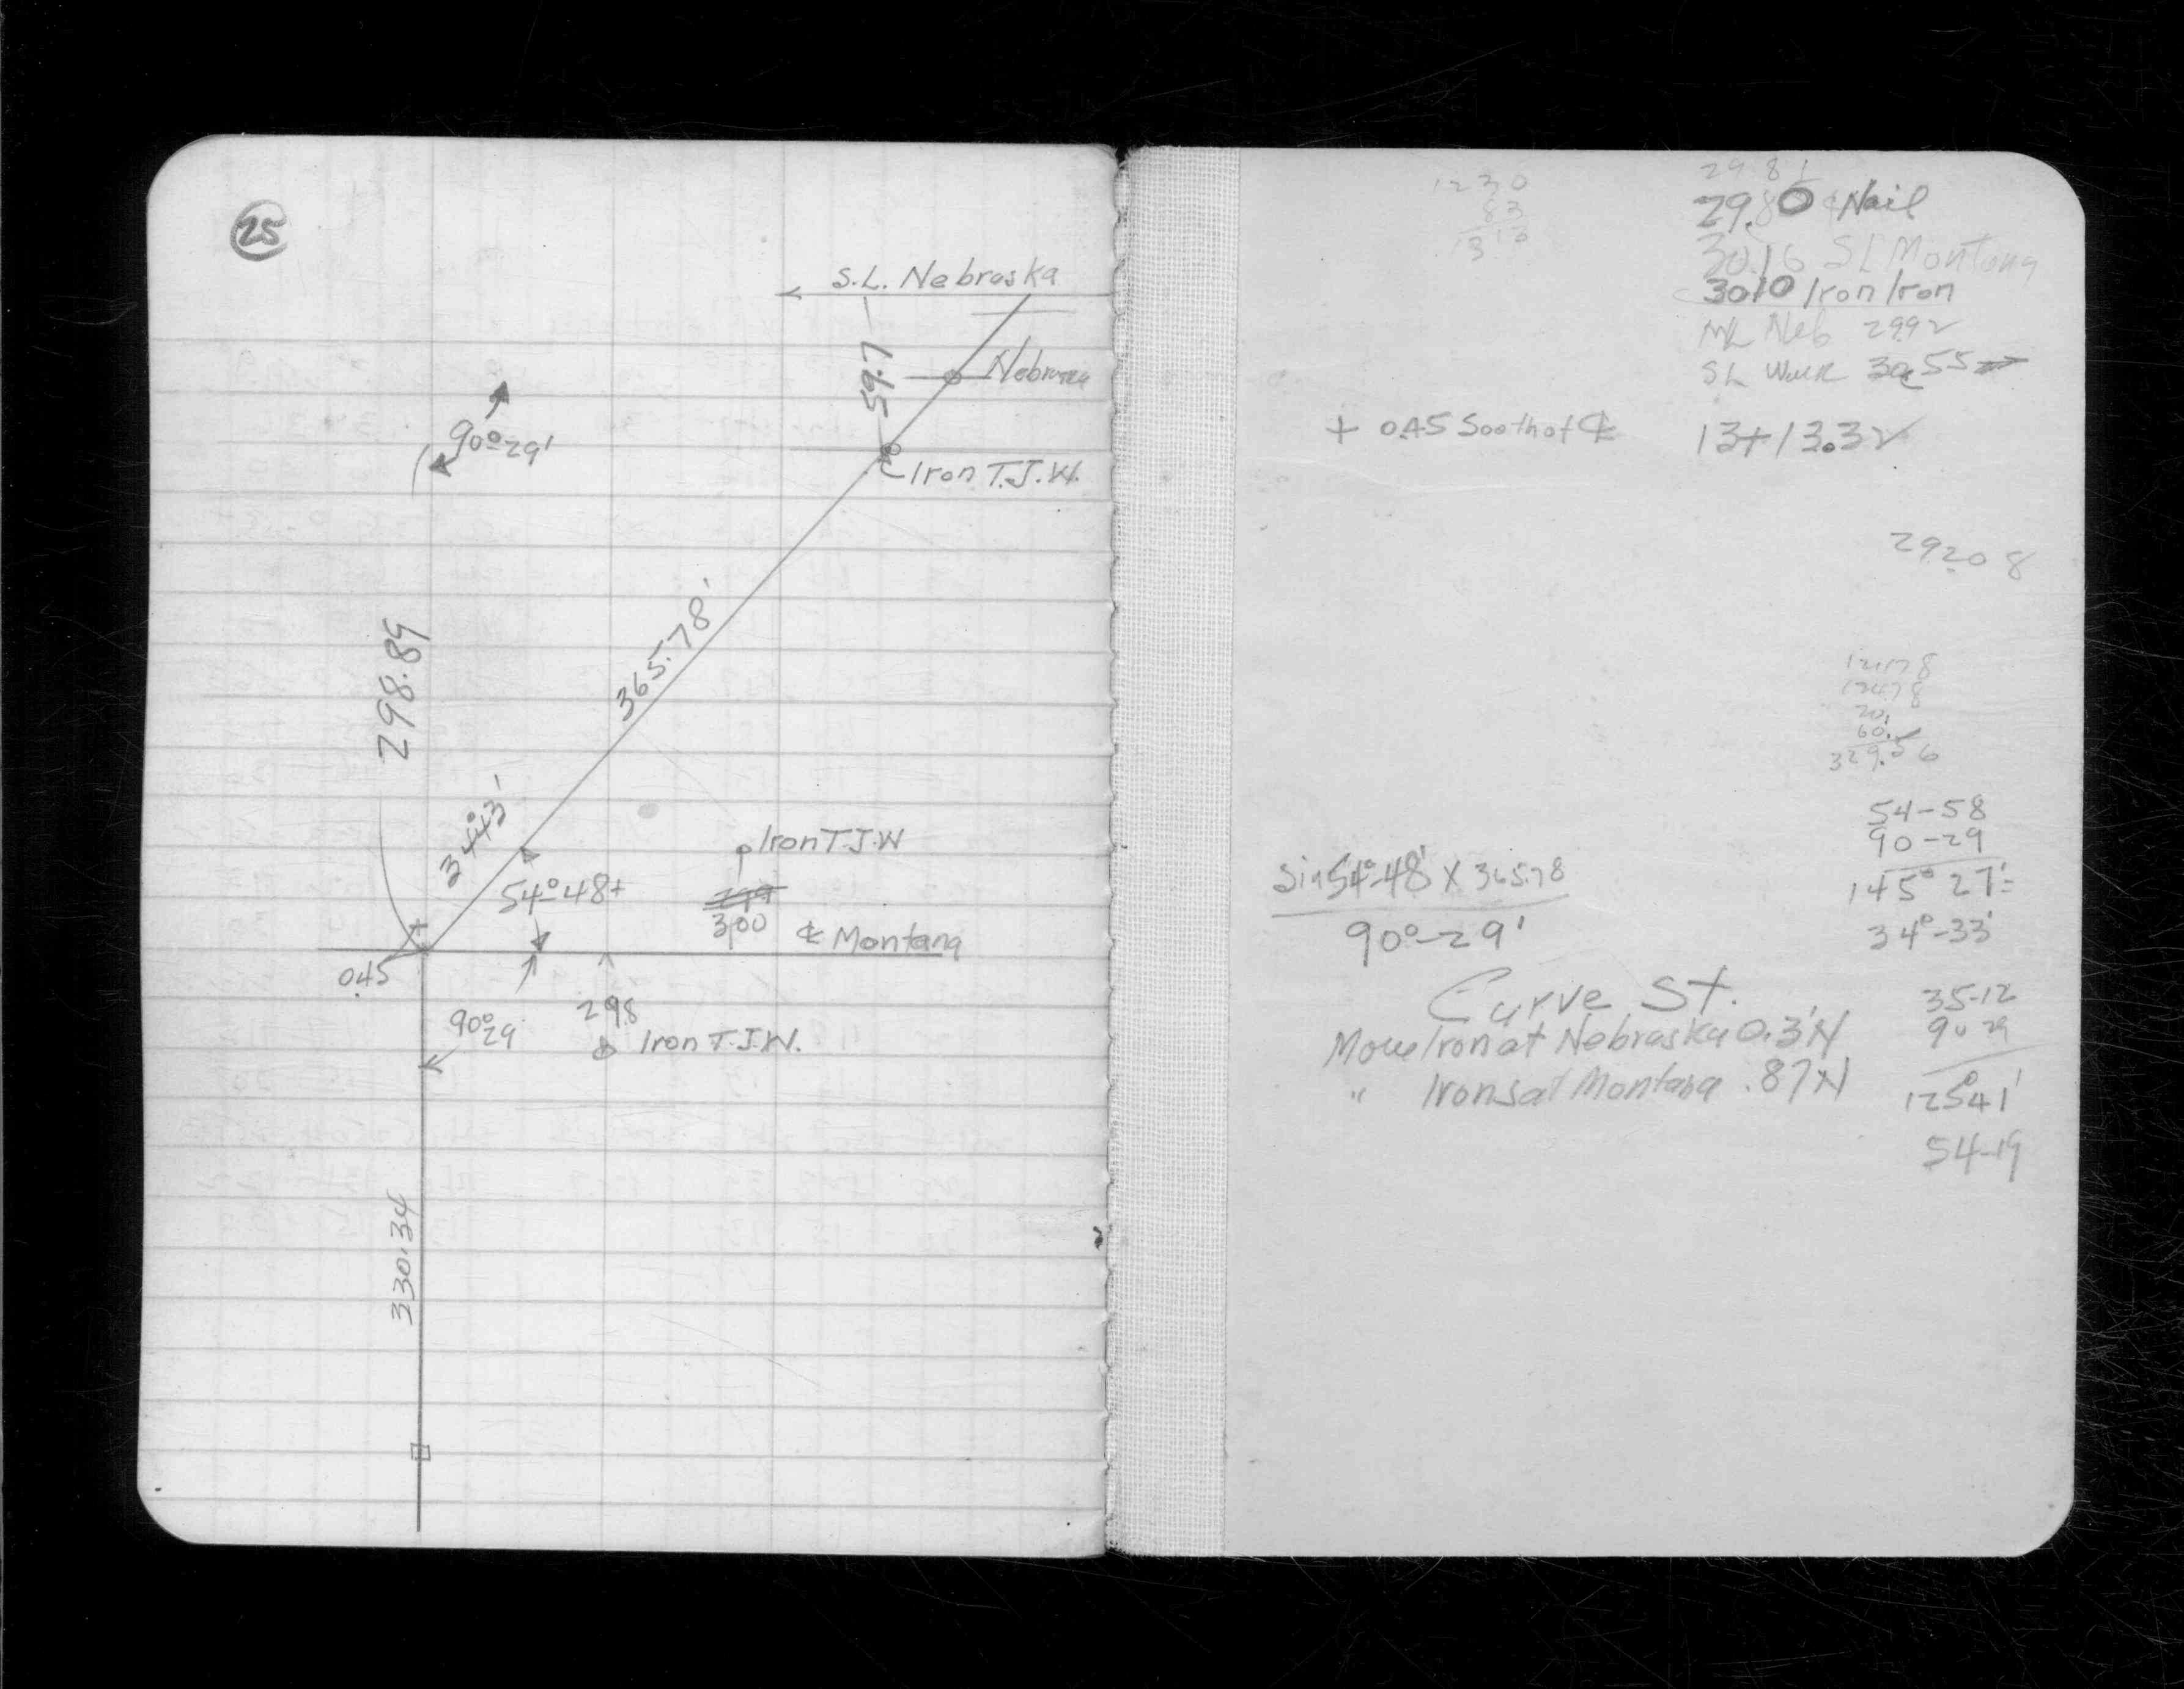 25
S.L. Nebraska
59.7
Nebraska
90°29'
Iron T.J.W.
365.78'
298.89
34°43'
Iron T.J.W
54°48+
300
℄ Montana
0.45
90°29
298
Iron T.J.W.
330.34
1230
83
1313
2981
29.80 Nail
30.16 SL Montana
30.10 Iron Iron
ML Neb 29.92
SL Walk 30.55
+ 0.45 South of ℄
13+13.32
29.20 8
124.78
124.78
20.
60.
329.56
54-58
90-29
145° 27'=
34°-33'
sin 54°-48' x 365.78
90°-29'
Curve St.
Move Iron at Nebraska 0.3'N
" Irons at Montana .87 N
35-12
90 29
125°41'
54-19